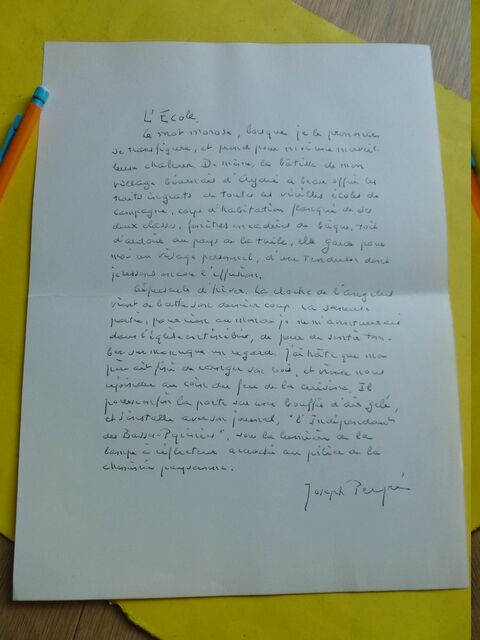 L'École.
Ce mot morose, lorsque je le prononce
se transfigure, et prend pour moi une merveil
leuse chaleur. De même, la bâtisse de mon
village béarnais d'Aydie a beau offrir les
traits ingrats de toutes les vieilles écoles de
campagne, corps d'habitation flanqué de ses
deux classes, fenêtres encadrées de brique, toit
d'ardoise au pays de la tuile, elle garde pour
moi un visage personnel, d'une tendresse dont
je ressens encore l'effusion.
Crépuscule d'hiver. La cloche de l'angelus
vient de battre son dernier coup. La sonnerie
partie, pour rien au monde je ne m'attarderais
dans l'église enténébrée, de peur de sentir tom
ber sur ma nuque un regard. J'ai hâte que mon
père ait fini de corriger ses et vienne nous
rejoindre au coin du feu de la cuisine. Il
pousse enfin la porte sur une bouffée d'air gelé,
et s'installe avec son journal, "l'Indépendant
des Basses-Pyrénées", sous la lumière de la
lampe à réflecteur accrochée au pilier de la
cheminée paysanne.
Joseph Peyré